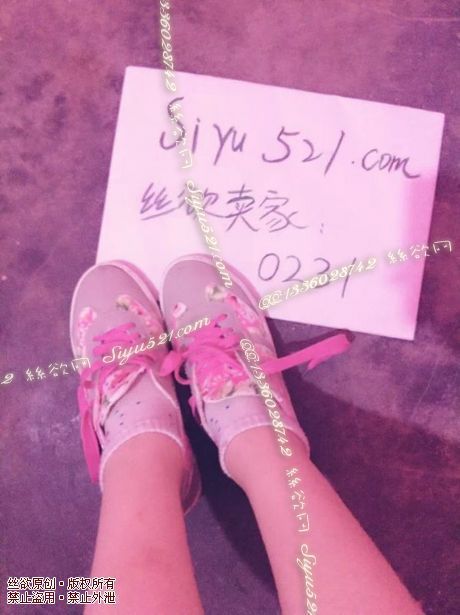 Siyu 521.com
丝欲卖家:
0221
@@:1336028742 絲欲网 Siyu521.com @@:1336028742 絲欲网 Siyu521.com
2 絲欲网 Siyu521.com @@:1336028742 絲欲网
丝欲原创·版权所有
禁止盗用·禁止外泄